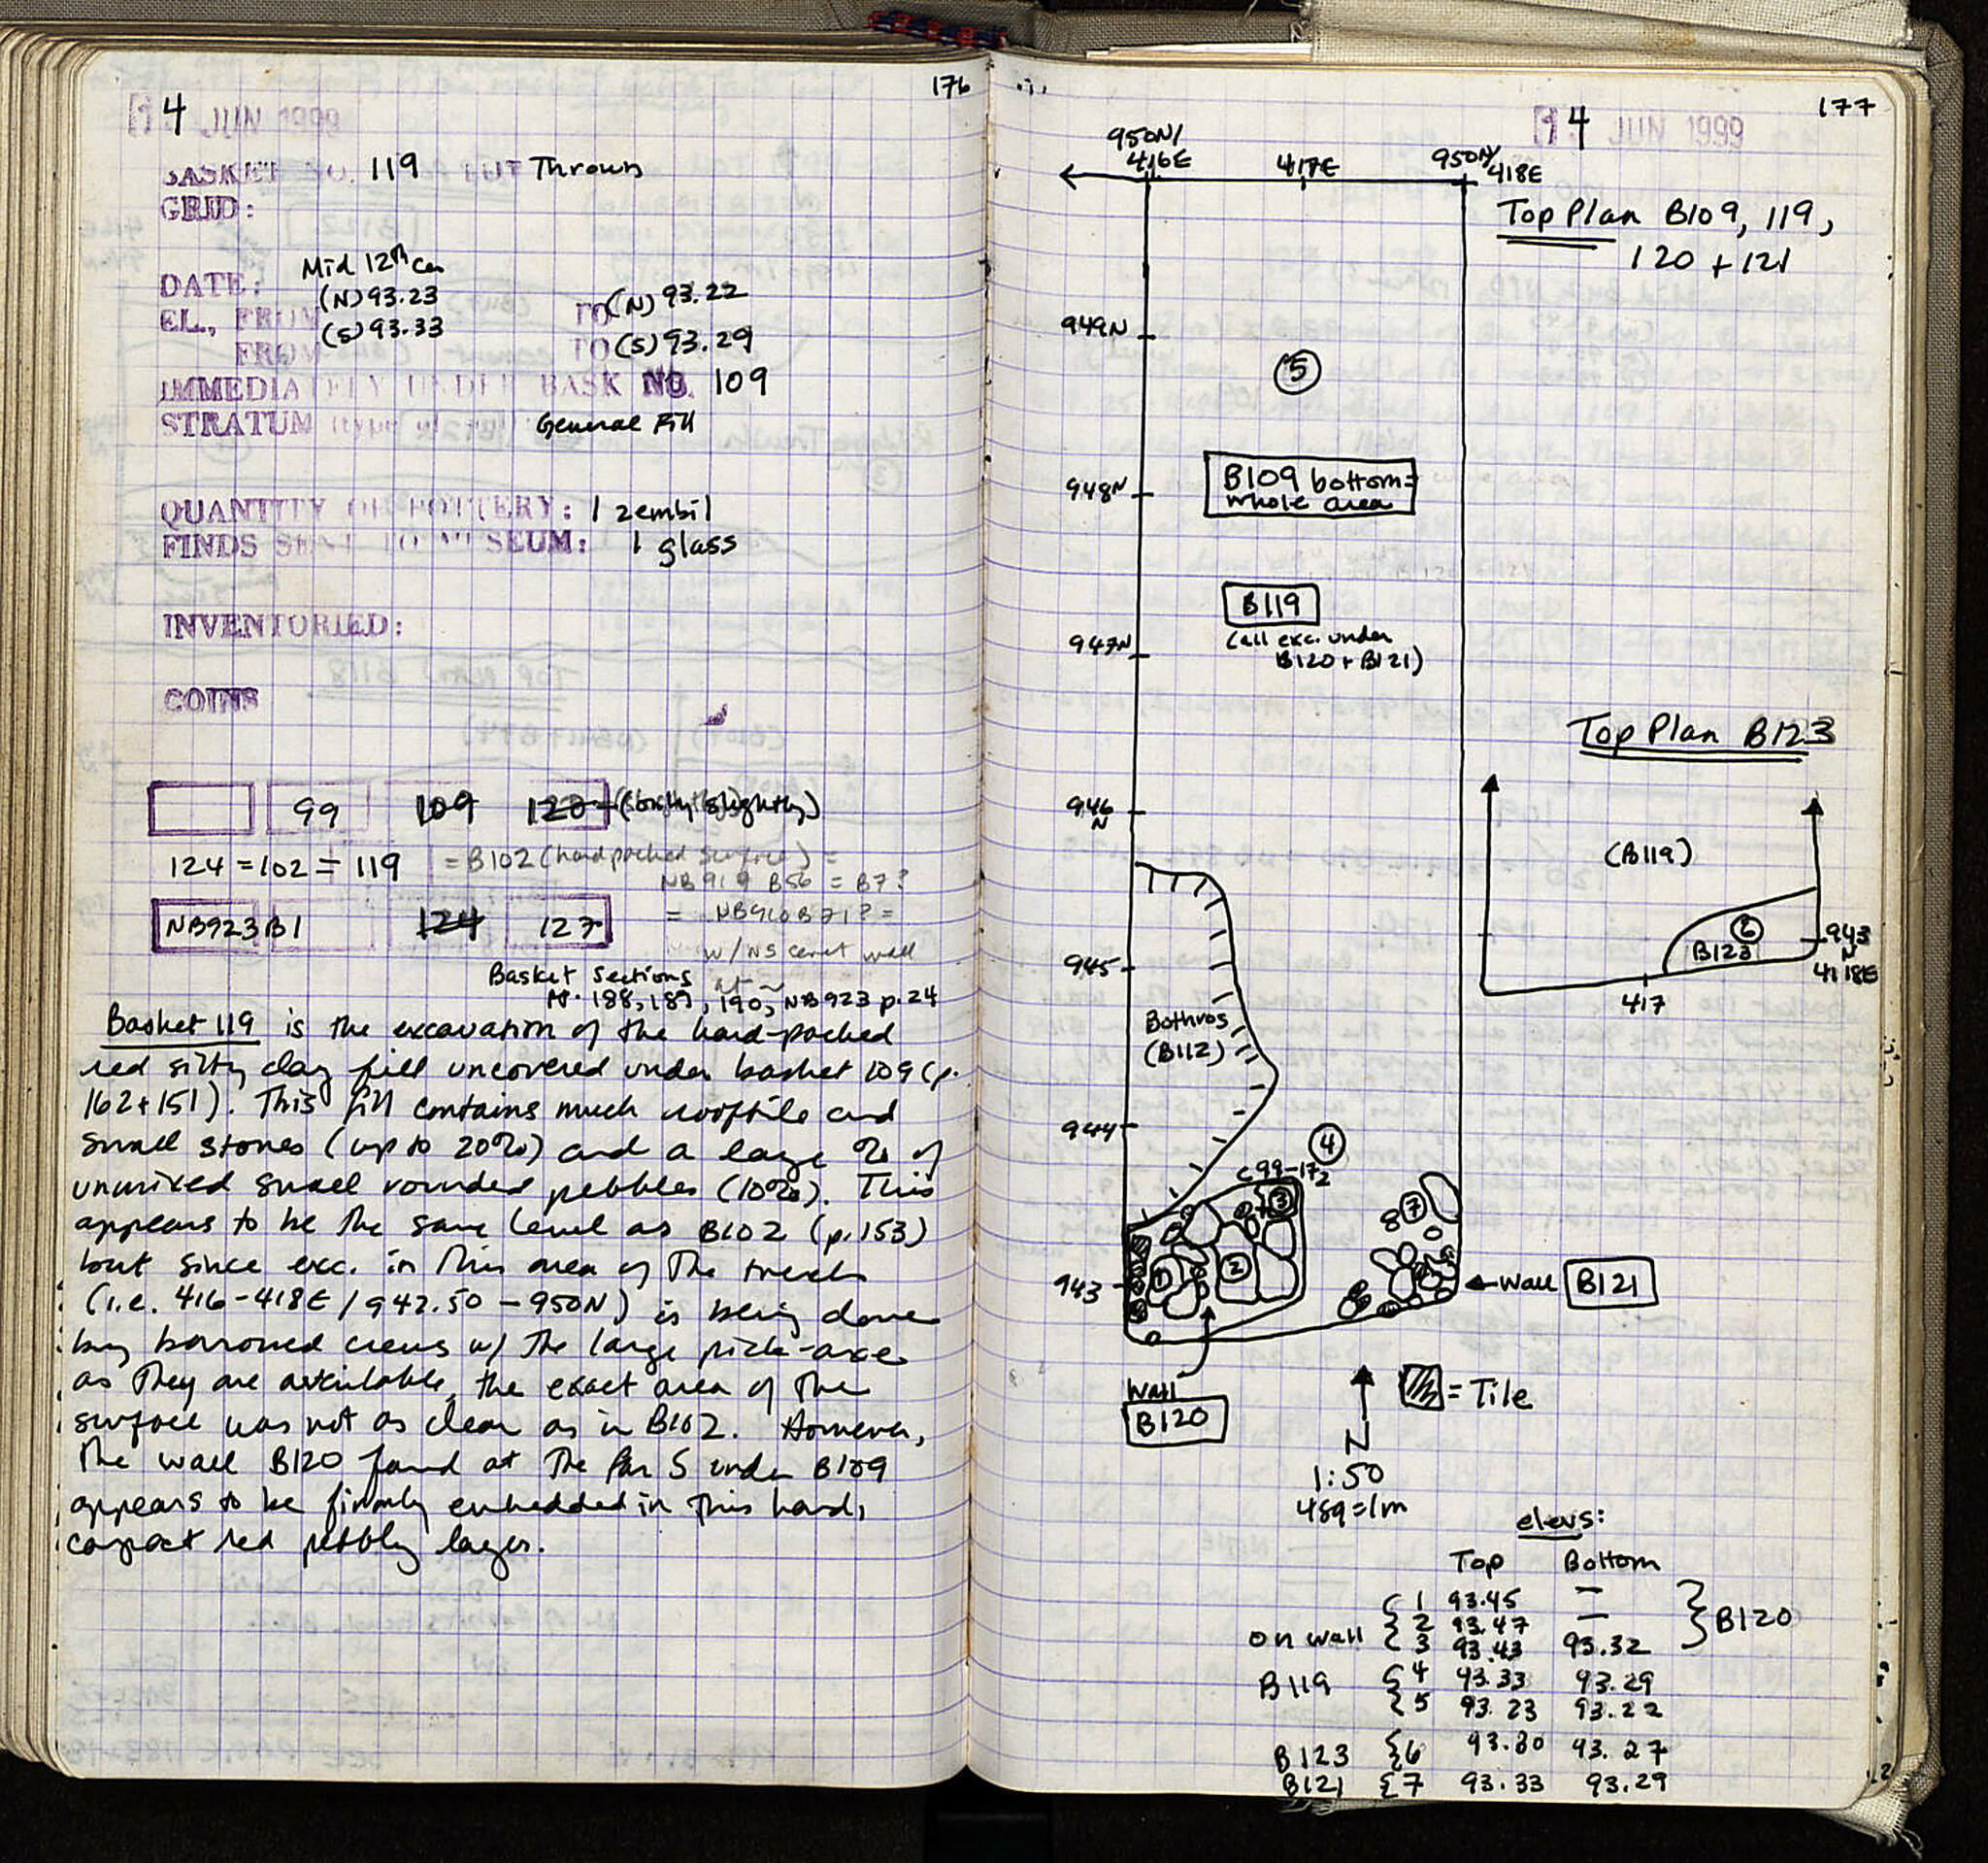 176
4 JUN 1999
BASKET NO. 119 POT Thrown
GRID:
Mid 12th Cen
DATE:
EL., FROM (N) 93.23 TO (N) 93.22
FROM (S) 93.33 TO (S) 93.29
IMMEDIATELY UNDER BASK NO. 109
STRATUM (type of soil) General Fill
QUANTITY OF POTTERY: 1 zembil
FINDS SENT TO MUSEUM: 1 glass
INVENTORIED:
COINS
99 109 120 slightly)
124 = 102 = 119 = B102 (hard packed surface) =
NB919 B56 = B7?
NB923 B1 124 127 = NB910 B71? =
w/ NS wall
at ~
Basket Sections
pp. 188, 189, 190, NB923 p.24
Basket 119 is the excavation of the hard-packed
red silty clay fill uncovered under basket 109 (p.
162+151). This fill contains much rooftile and
small stones (up to 20%) and a large % of
unmixed small rounded pebbles (10%). This
appears to be the same level as B102 (p.153)
but since exc. in this area of the trench
(i.e. 416-418E / 942.50 - 950N) is being done
by borrowed crews w/ the large pick-axes
as they are available, the exact area of the
surface was not as clear as in B102. However,
the wall B120 found at the far S under B109
appears to be firmly embedded in this hard,
compact red pebbly layer.
177
4 JUN 1999
950N/
416E
417E
950N/
418E
Top Plan B109, 119,
120 + 121
949N
5
948N
B109 bottom=
whole area
B119
(all exc. under
B120 + B121)
947N
Top Plan B123
946
N
(B119)
6
B123
943
N
418E
417
945
Bothros
(B112)
944
4
C99-172
3
7
1
2
943
Wall B121
Wall
B120
= Tile
N
1:50
4sq=1m
elevs:
Top Bottom
1 93.45 —
2 93.47 —
on wall 3 93.43 93.32 B120
B119 4 93.33 93.29
5 93.23 93.22
B123 6 93.30 93.27
B121 7 93.33 93.29